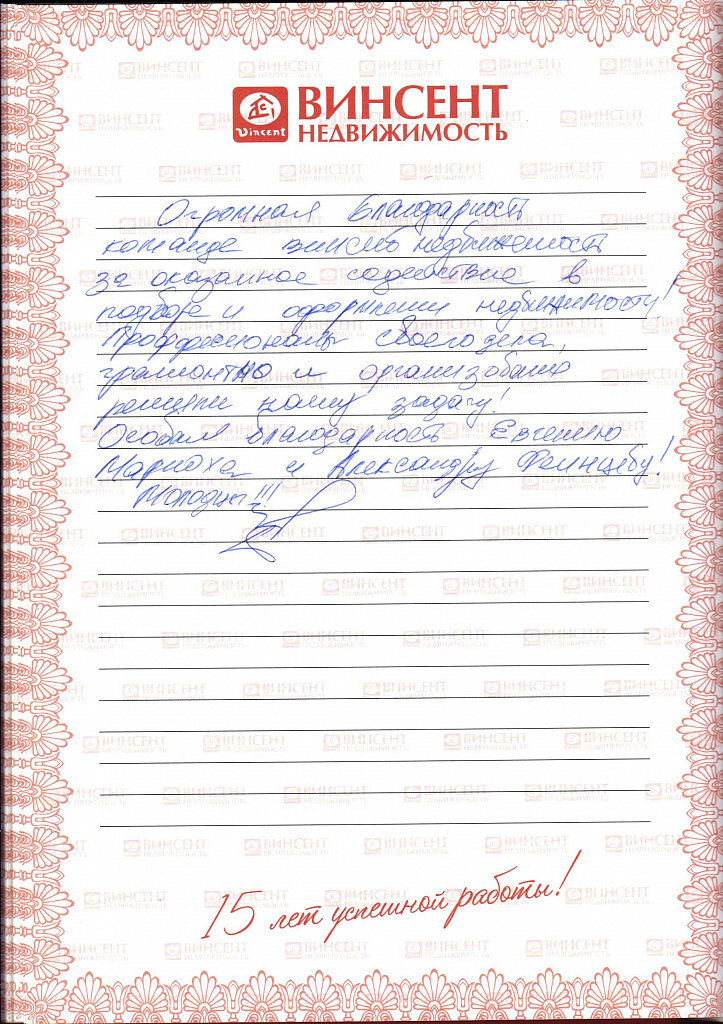 Vincent
ВИНСЕНТ
НЕДВИЖИМОСТЬ
Огромная благодарность
команде винсент недвижимость
за оказанное содействие в
подборе и оформлении недвижимости!
Профессионалы своего дела,
грамотно и организованно
решили нашу задачу!
Особая благодарность Евгению
и Александру
Молодцы!!!
15 лет успешной работы!